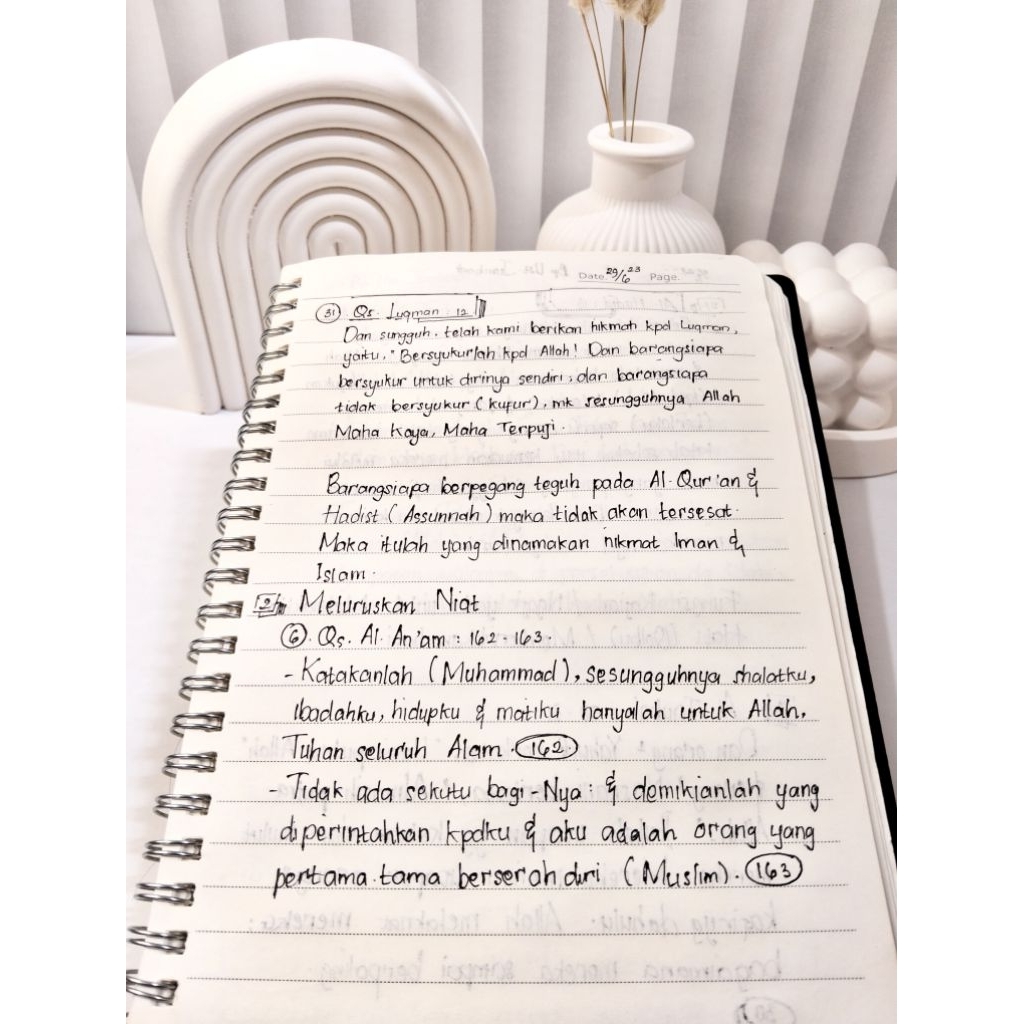 Date. 29/6 23 Page.
31 Qs. Luqman : 12
Dan sungguh, telah kami berikan hikmah kpd Luqman,
yaitu, "Bersyukurlah kpd Allah! Dan barangsiapa
bersyukur untuk dirinya sendiri, dan barangsiapa
tidak bersyukur (kufur), mk sesungguhnya Allah
Maha Kaya, Maha Terpuji.
Barangsiapa berpegang teguh pada Al-Qur'an &
Hadist (Assunnah) maka tidak akan tersesat.
Maka itulah yang dinamakan nikmat Iman &
Islam.
2 Meluruskan Niat
6. Qs. Al. An'am : 162 - 163.
- Katakanlah (Muhammad), sesungguhnya shalatku,
Ibadahku, hidupku & matiku hanyalah untuk Allah,
Tuhan seluruh Alam. 162
- Tidak ada sekutu bagi-Nya : & demikianlah yang
diperintahkan kpdku & aku adalah orang yang
pertama-tama berserah diri (Muslim). 163